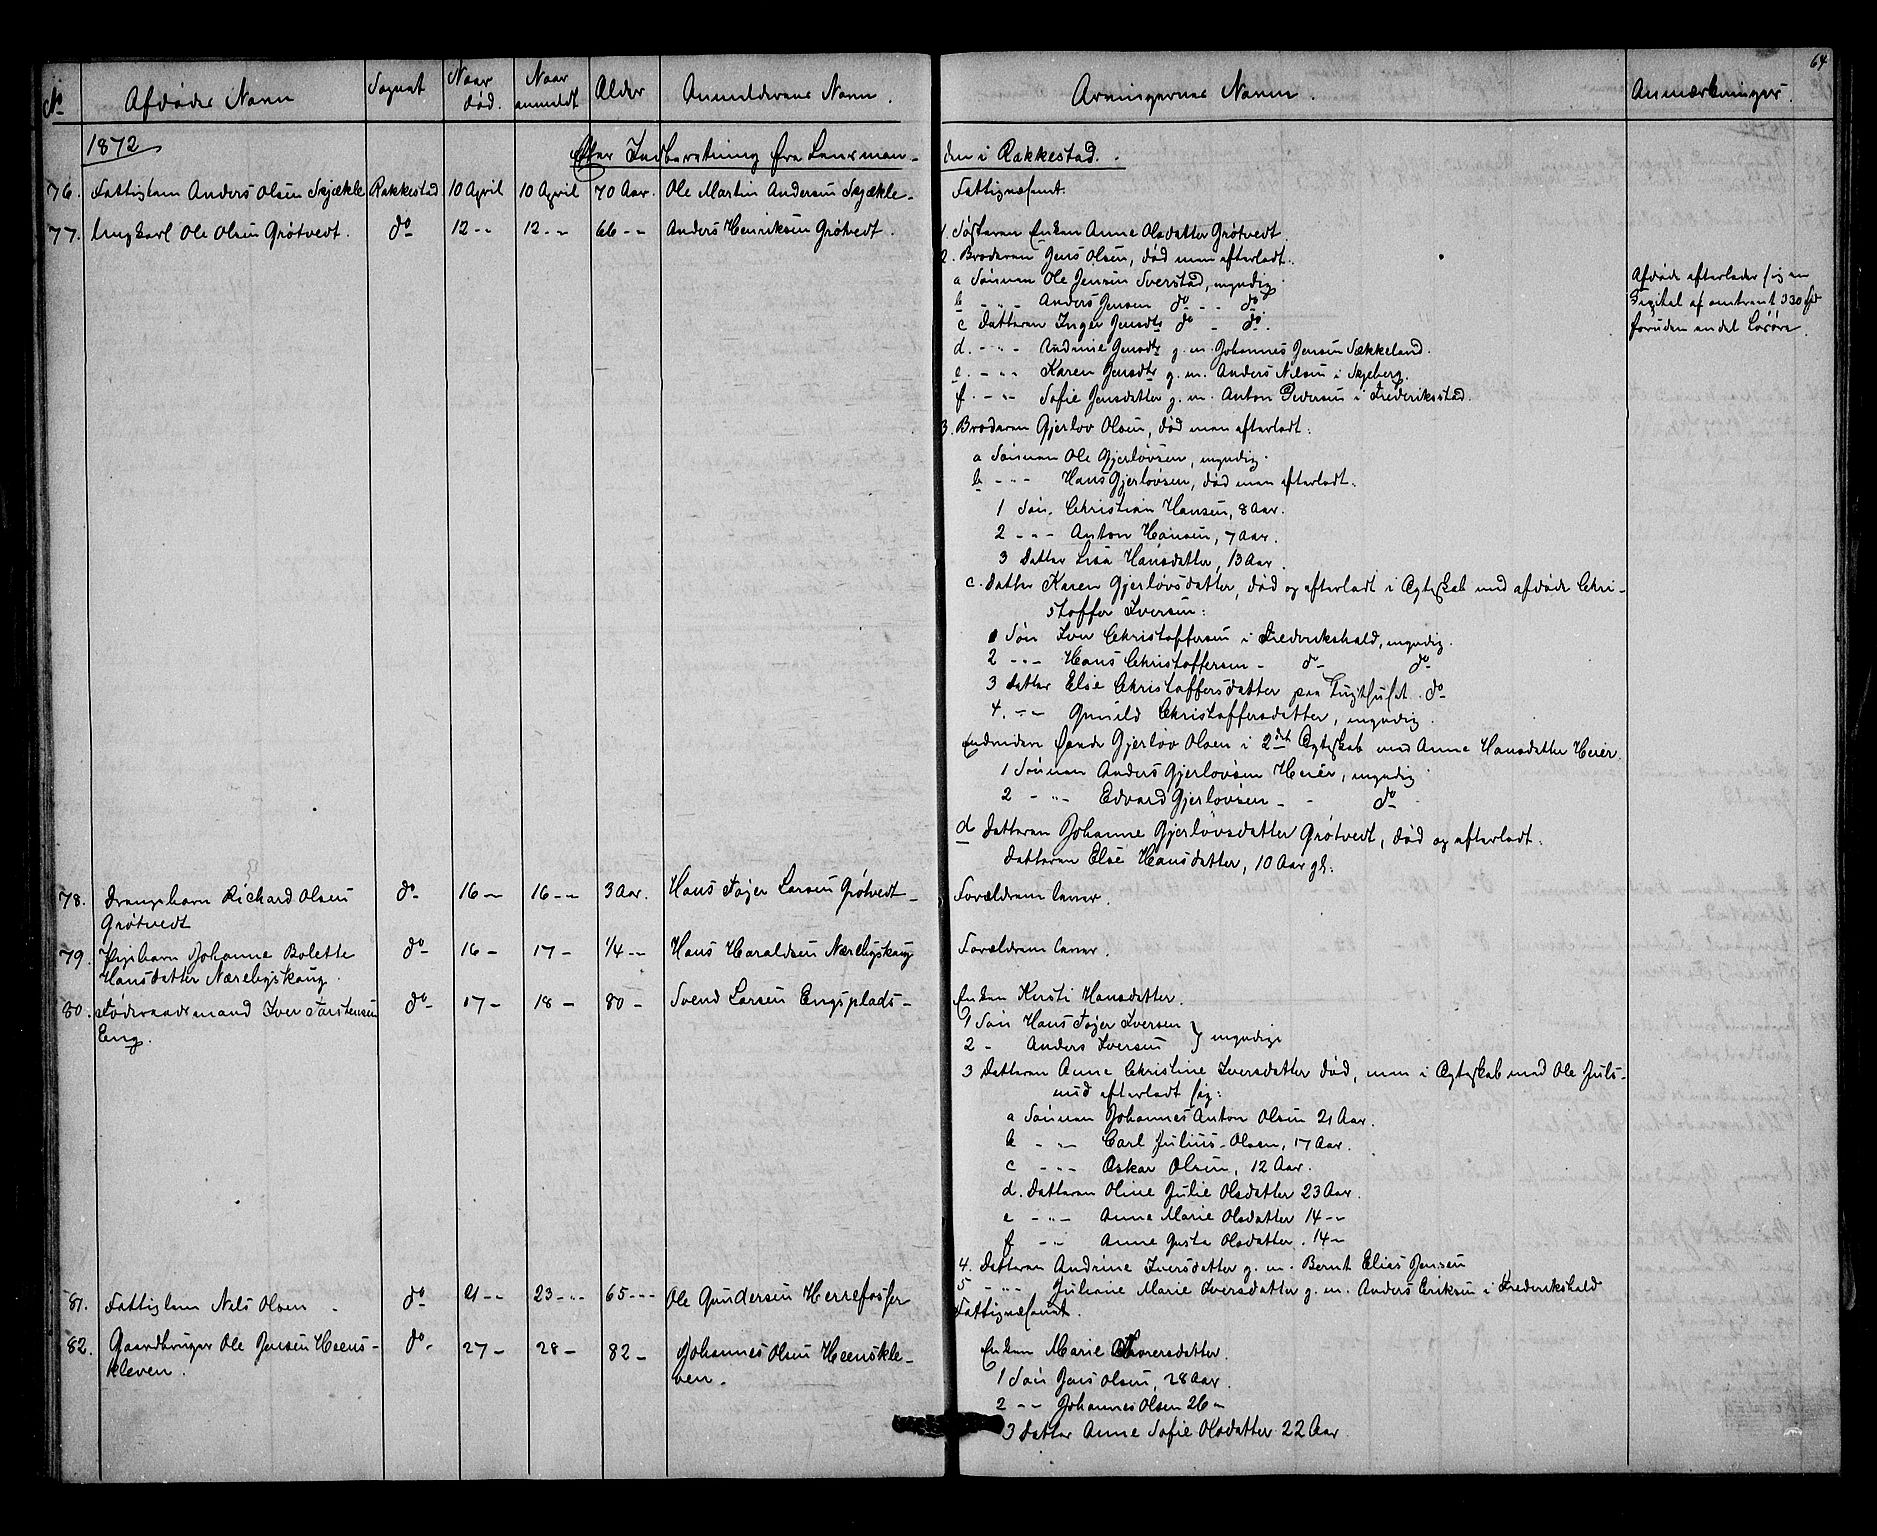 64
No Afdødes Navn Sognet Naar død. Naar anmeldt Alder Anmelderens Navn. Arvingernes Navn. Anmærkninger.
1872 Efter Indberetning fra Lensmanden i Rakkestad.
76. Fattiglem Anders Olsen Skjækle Rakkestad 10 April 10 April 70 Aar. Ole Martin Andersen Skjækle Fattigvæsenet.
77. Ungkarl Ole Olsen Grøtvedt. do 12 - 12 - 66 - Anders Henriksen Grøtvedt. 1. Søsteren Enken Anne Olsdatter Grøtvedt
2. Broderen Jens Olsen, død men efterladt:
a Sønnen Ole Jensen Sverstad, myndig
b - Anders Jensen do - do
c Datteren Inger Jensdtr do - do
d. - Jensdtr g. m. Johannes Jensen Sækkeland.
e. - Karen Jensdtr g. m. Anders Nilsen i Skjeberg.
f. - Sofie Jensdatter g. m. Anton Pedersen i Frederiksstad.
Afdøde efterlader sig en
Kapital af omtrent 330 Spd
foruden endel Løsøre.
3. Broderen Gjerløv Olsen, død men efterladt:
a Sønnen Ole Gjerløvsen, myndig.
b - Hans Gjerløvsen, død men efterladt:
1 Søn. Christian Hansen, 8 Aar.
2 - Anton Hansen, 7 Aar.
3 Datter Lisa Hansdatter, 13 Aar.
c. Datter Karen Gjerløvsdatter, død og efterladt i Ægteskab med afdøde Chri-
stoffer Iversen:
1 Søn Iver Christoffersen i Frederikshald, myndig.
2 - Hans Christoffersen - do - do
3 Datter Else Christoffersdatter paa Tugthuset. do
4. - Gunild Christoffersdatter, myndig.
Endvidere havde Gjerløv Olsen i 2det Ægteskab med Anne Hansdatter Heier
1 Sønnen Anders Gjerløvsen Heier, myndig
2 - Edvard Gjerløvsen - do
d Datteren Johanne Gjerløvsdatter Grøtvedt, død og efterladt:
Datteren Else Hansdatter, 10 Aar gl.
78. Drengebarn Richard Olsen do 16 - 16 - 3 Aar. Hans Tøger Larsen Grøtvedt Forældrene lever.
Grøtvedt
79. Pigebarn Johanne Bolette do 16 - 17 - 1/4 - Hans Haraldsen Nærebyskaug Forældrene lever.
Hansdatter Nærebyskaug.
80. Føderaadsmand Iver Torstensen do 17 - 18 - 80 - Svend Larsen Engsplads Enken Kirsti Hansdatter.
Eng.
1 Søn Hans Tøger Iversen } myndige
2 - Anders Iversen
3 Datteren Anne Christine Iversdatter død, men i Ægteskab med Ole Juls-
rud efterladt sig:
a Sønnen Johannes Anton Olsen 21 Aar.
b - Carl Julius Olsen, 17 Aar.
c - Oskar Olsen, 12 Aar.
d. Datteren Oline Julie Olsdatter 23 Aar.
e - Anne Marie Olsdatter 14 -
f - Anne Gusta Olsdatter. 14 -
4. Datteren Andrine Iversdatter g. m. Bernt Elias Jensen
5 - Juliane Marie Iversdatter g. m. Anders Eriksen i Frederikshald
81. Fattiglem Nels Olsen do 21 - 23 - 65 - Ole Gundersen Herrefosser Fattigvæsenet.
82. Gaardbruger Ole Jensen Heens- do 27 - 28 - 82 - Johannes Olsen Heenskle- Enken Marie Thoresdatter.
kleven. ven.
1 Søn Jens Olsen, 28 Aar.
2 - Johannes Olsen 26 -
3 Datter Anne Sofie Olsdatter 22 Aar